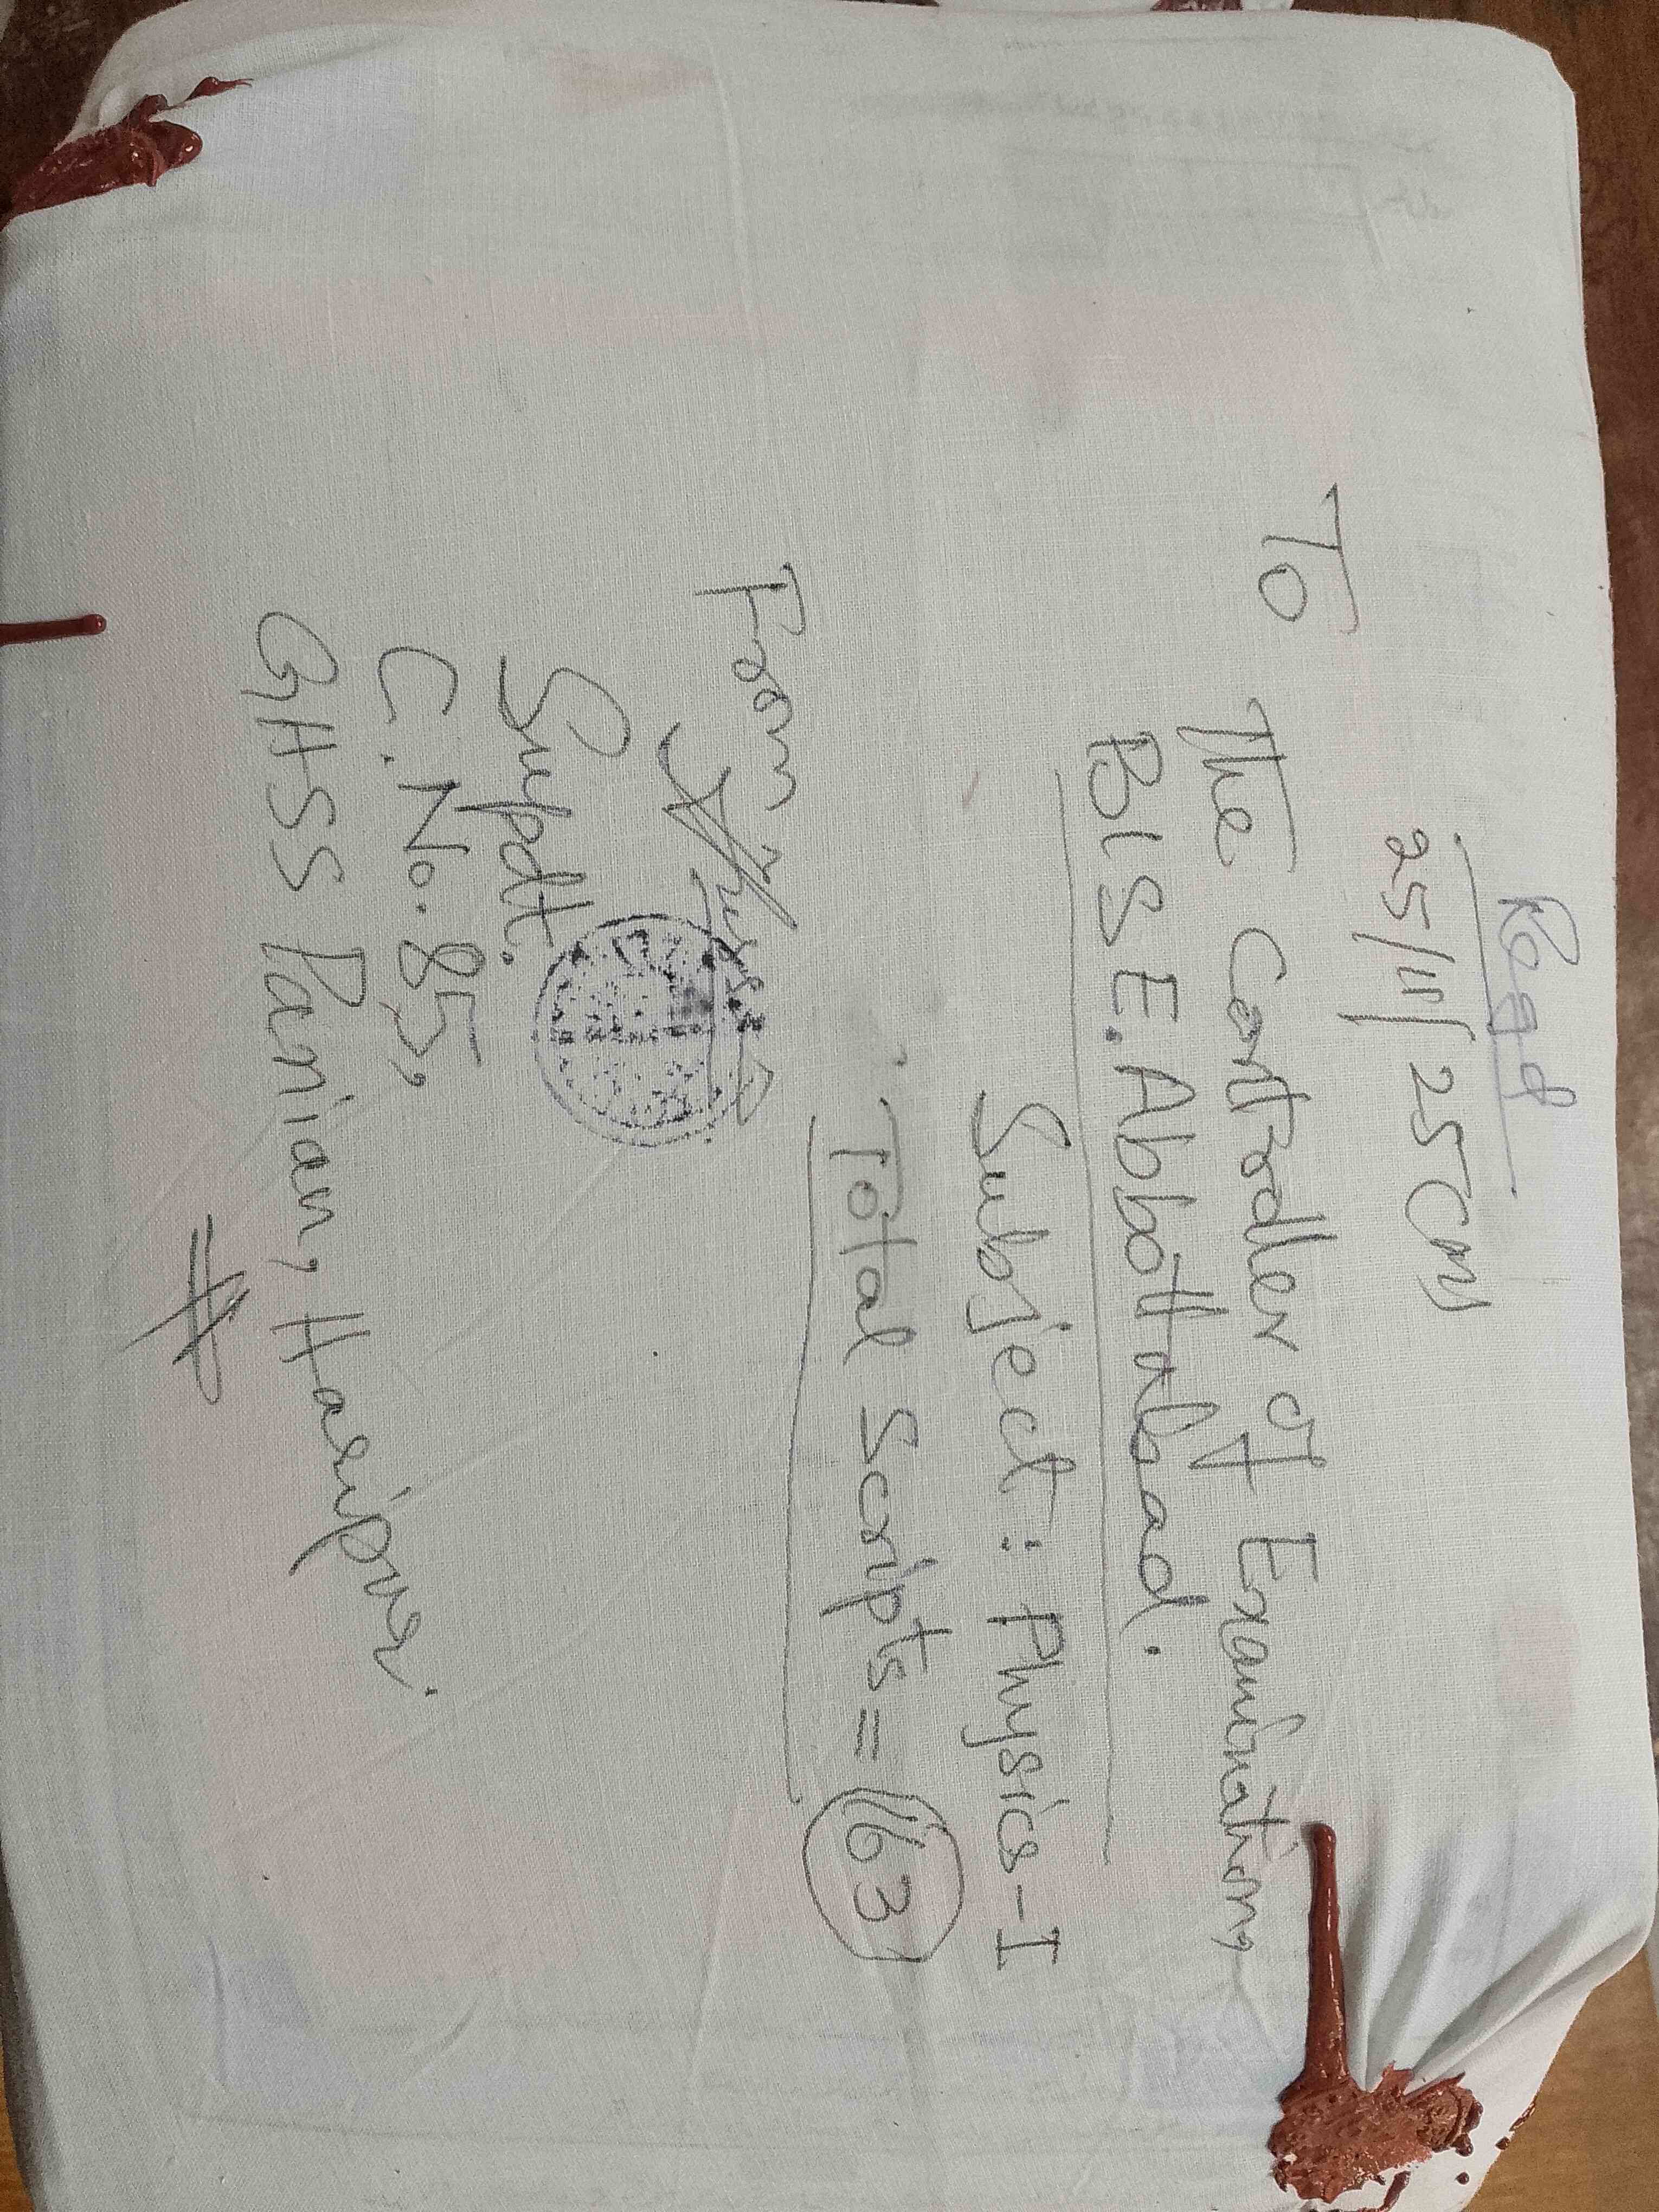 Regd
To
The Controller of Examinations,
BISE. Abbottabad.
Subject: Physics-I
Total Scripts = 163
From
Supdt.
C.No. 85,
GHSS Panian, Haripur.